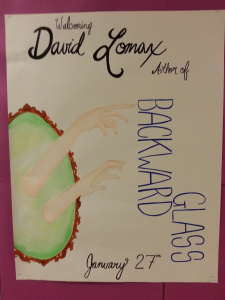 Welcoming
David Lomax
Author of
BACKWARD
GLASS
January 27th